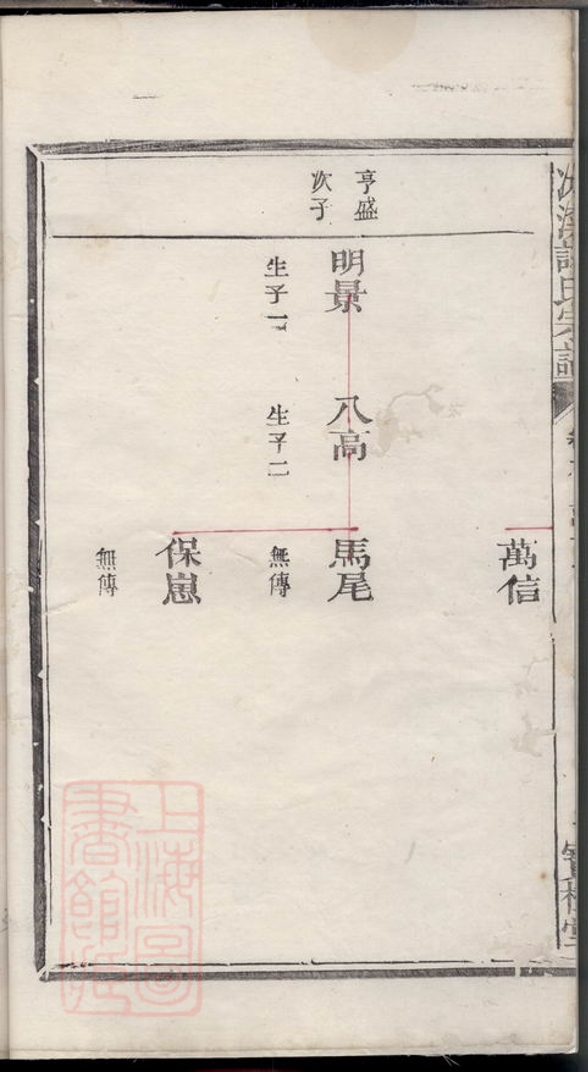 萬信
亨盛
次子
明景
生子一
八高
生子二
馬尾
無傳
保崽
無傳
上海圖
書館藏